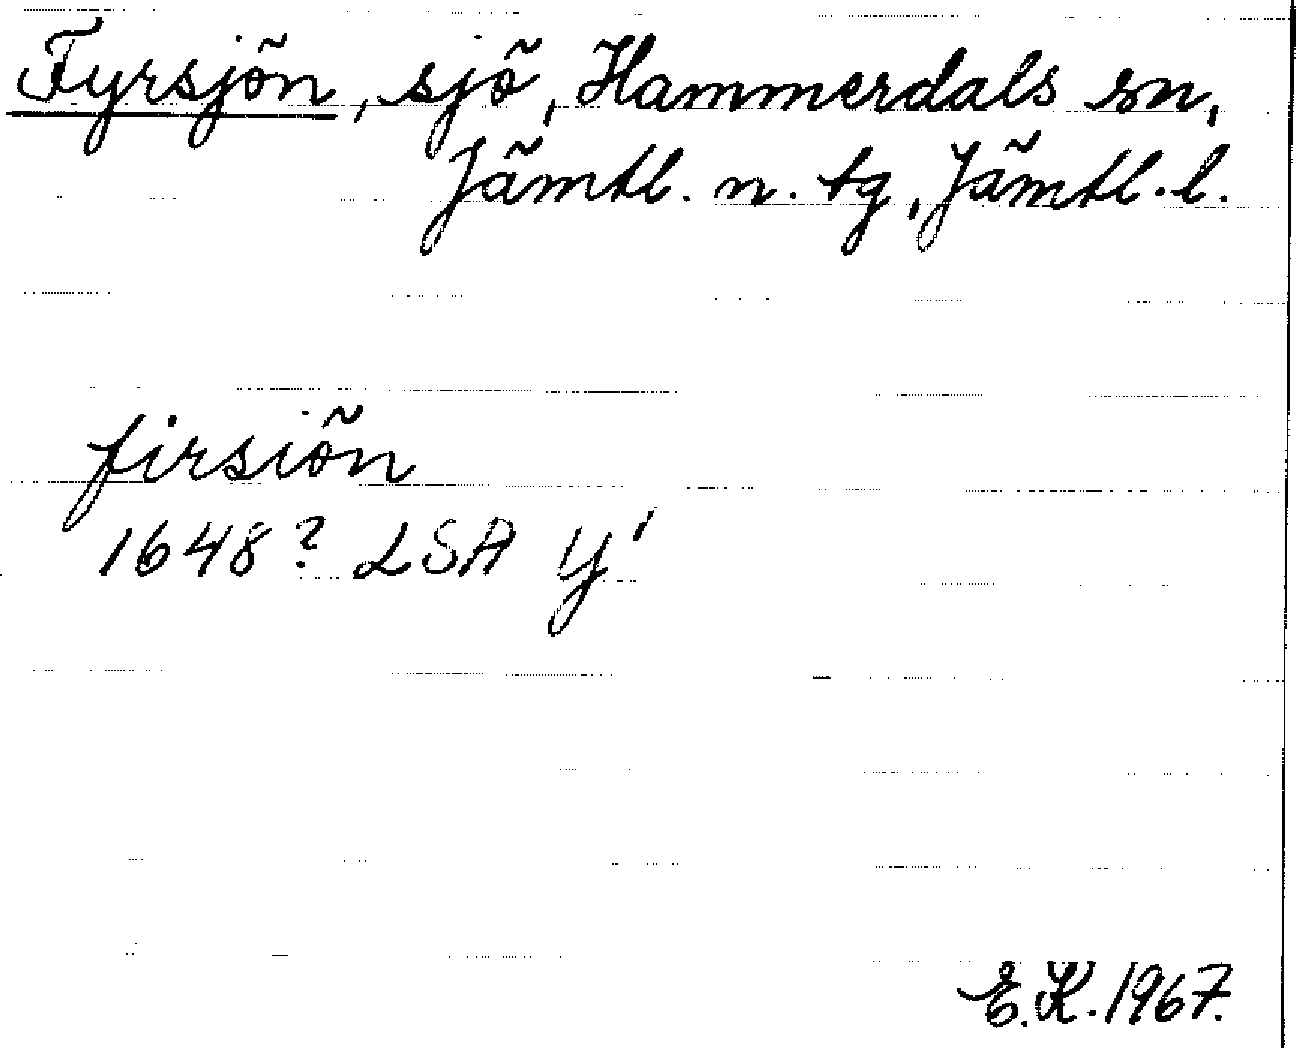 Fyrsjön, sjö, Hammerdals sn,
Jämtl. n. tg, Jämtl. l.
firsiön
1648? LSA Y¹
E.K. 1967.